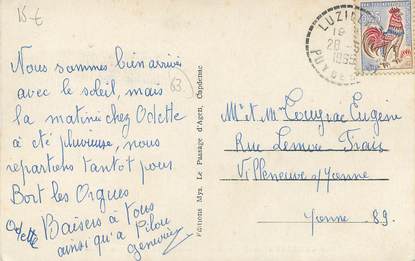 15 €
Nous sommes bien arrivés
avec le soleil, mais
la matinée chez Odette
a été pluvieuse, nous
repartons tantôt pour
Bort les Orgues
Baisers à tous
ainsi qu'à Pilou
Odette
Geneviève
63
Editions Mys. Le Passage d'Agen, Capdense
LUZIL
19
28-
1965
PUY DE
Mr et Mme Eugène
Rue
Villeneuve s/Yonne
Yonne 89.